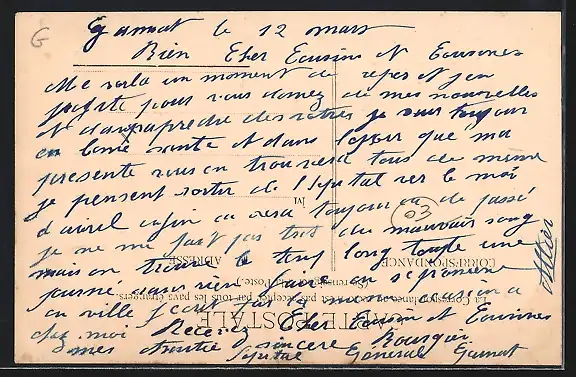 Gannat le 12 mars
Bien Cher Cousins et Cousines
Me voila un moment de repos et jen
profite pour vous donnez de mes nouvelles
et dauprapredre des votres je suis toujour
en bonne sante et dans lespoir que ma
presente vous en trouvera tous de meme
je pensent sortir de l'hopital vers le moi
d'avril enfin ca sera toujour ca de passé
je ne me fait pas trot de mauvais sang
mais on trouve le temp long toute une
journé sans rien faire on se promene
en ville
chez moi Recevez Cher Cousin et Cousines
mes amitié sincere Rougier
Hopital General Gannat
Allier
03
G
CARTE POSTALE
La Correspondance au recto n'est pas acceptée par tous les pays étrangers
(Se renseigner à la Poste.)
CORRESPONDANCE
ADRESSE